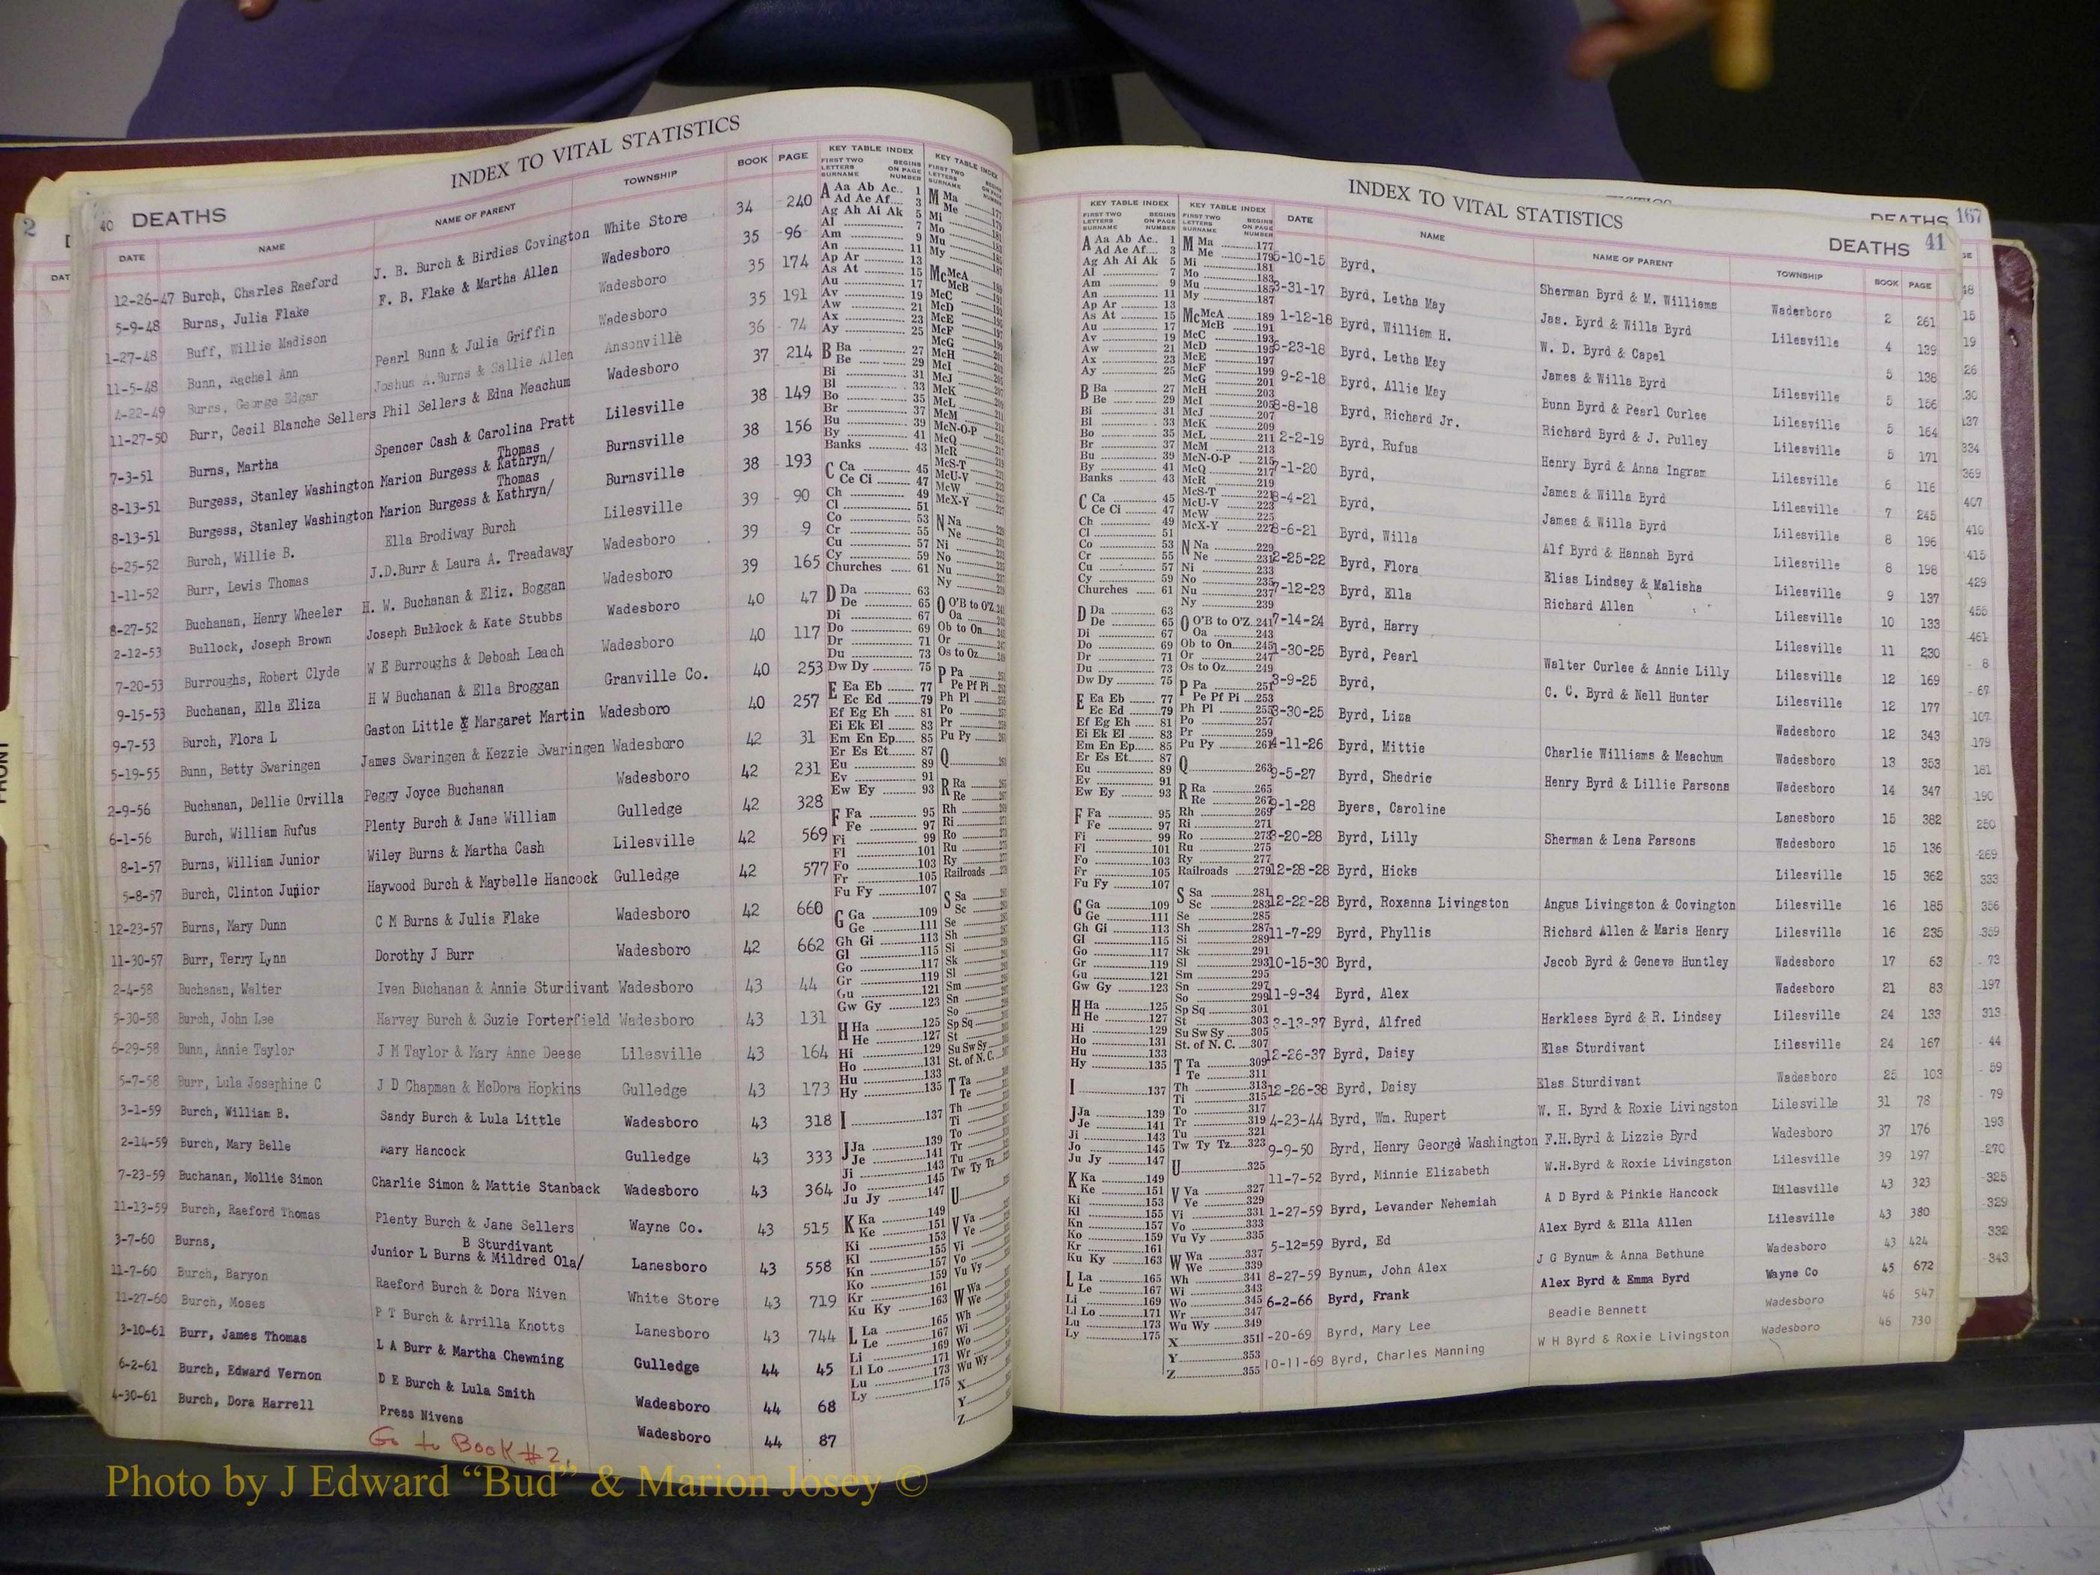 INDEX TO VITAL STATISTICS
40 DEATHS
DATE NAME NAME OF PARENT TOWNSHIP BOOK PAGE
12-26-47 Burch, Charles Raeford J. B. Burch & Birdies Covington White Store 34 240
5-9-48 Burns, Julia Flake F. B. Flake & Martha Allen Wadesboro 35 96
1-27-48 Buff, Willie Madison Wadesboro 35 174
11-5-48 Bunn, Rachel Ann Pearl Bunn & Julia Griffin Wadesboro 35 191
4-22-49 Burns, George Edgar Joshua A.Burns & Sallie Allen Ansonville 36 74
11-27-50 Burr, Cecil Blanche Sellers Phil Sellers & Edna Meachum Wadesboro 37 214
7-3-51 Burns, Martha Spencer Cash & Carolina Pratt Lilesville 38 149
Thomas
8-13-51 Burgess, Stanley Washington Marion Burgess & Kathryn/ Burnsville 38 156
Thomas
8-13-51 Burgess, Stanley Washington Marion Burgess & Kathryn/ Burnsville 38 193
6-25-52 Burch, Willie B. Ella Brodiway Burch Lilesville 39 90
1-11-52 Burr, Lewis Thomas J.D.Burr & Laura A. Treadaway Wadesboro 39 9
8-27-52 Buchanan, Henry Wheeler H. W. Buchanan & Eliz. Boggan Wadesboro 39 165
2-12-53 Bullock, Joseph Brown Joseph Bullock & Kate Stubbs Wadesboro 40 47
7-20-53 Burroughs, Robert Clyde W E Burroughs & Deboah Leach Wadesboro 40 117
9-15-53 Buchanan, Ella Eliza H W Buchanan & Ella Broggan Granville Co. 40 253
9-7-53 Burch, Flora L Gaston Little & Margaret Martin Wadesboro 40 257
5-19-55 Bunn, Betty Swaringen James Swaringen & Kezzie Swaringen Wadesboro 42 31
2-9-56 Buchanan, Dellie Orvilla Peggy Joyce Buchanan Wadesboro 42 231
6-1-56 Burch, William Rufus Plenty Burch & Jane William Gulledge 42 328
8-1-57 Burns, William Junior Wiley Burns & Martha Cash Lilesville 42 569
5-8-57 Burch, Clinton Junior Haywood Burch & Maybelle Hancock Gulledge 42 577
12-23-57 Burns, Mary Dunn C M Burns & Julia Flake Wadesboro 42 660
11-30-57 Burr, Terry Lynn Dorothy J Burr Wadesboro 42 662
2-4-58 Buchanan, Walter Iven Buchanan & Annie Sturdivant Wadesboro 43 44
5-30-58 Burch, John Lee Harvey Burch & Suzie Porterfield Wadesboro 43 131
6-29-58 Bunn, Annie Taylor J M Taylor & Mary Anne Deese Lilesville 43 164
5-7-58 Burr, Lula Josephine C J D Chapman & McDora Hopkins Gulledge 43 173
3-1-59 Burch, William B. Sandy Burch & Lula Little Wadesboro 43 318
2-14-59 Burch, Mary Belle Mary Hancock Gulledge 43 333
7-23-59 Buchanan, Mollie Simon Charlie Simon & Mattie Stanback Wadesboro 43 364
11-13-59 Burch, Raeford Thomas Plenty Burch & Jane Sellers Wayne Co. 43 515
B Sturdivant
3-7-60 Burns, Junior L Burns & Mildred Ola/ Lanesboro 43 558
11-7-60 Burch, Baryon Raeford Burch & Dora Niven White Store 43 719
11-27-60 Burch, Moses P T Burch & Arrilla Knotts Lanesboro 43 744
3-10-61 Burr, James Thomas L A Burr & Martha Chewning Gulledge 44 45
6-2-61 Burch, Edward Vernon D E Burch & Lula Smith Wadesboro 44 68
4-30-61 Burch, Dora Harrell Press Nivens Wadesboro 44 87
Go to Book #2.
KEY TABLE INDEX
FIRST TWO LETTERS SURNAME BEGINS ON PAGE NUMBER
A Aa Ab Ac 1
Ad Ae Af 3
Ag Ah Ai Ak 5
Al 7
Am 9
An 11
Ap Ar 13
As At 15
Au 17
Av 19
Aw 21
Ax 23
Ay 25
B Ba 27
Be 29
Bi 31
Bl 33
Bo 35
Br 37
Bu 39
By 41
Banks 43
C Ca 45
Ce Ci 47
Ch 49
Cl 51
Co 53
Cr 55
Cu 57
Cy 59
Churches 61
D Da 63
De 65
Di 67
Do 69
Dr 71
Du 73
Dw Dy 75
E Ea Eb 77
Ec Ed 79
Ef Eg Eh 81
Ei Ek El 83
Em En Ep 85
Er Es Et 87
Eu 89
Ev 91
Ew Ey 93
F Fa 95
Fe 97
Fi 99
Fl 101
Fo 103
Fr 105
Fu Fy 107
G Ga 109
Ge 111
Gh Gi 113
Gl 115
Go 117
Gr 119
Gu 121
Gw Gy 123
H Ha 125
He 127
Hi 129
Ho 131
Hu 133
Hy 135
I 137
J Ja 139
Je 141
Ji 143
Jo 145
Ju Jy 147
K Ka 149
Ke 151
Ki 153
Kl 155
Kn 157
Ko 159
Kr 161
Ku Ky 163
L La 165
Le 167
Li 169
Ll Lo 171
Lu 173
Ly 175
INDEX TO VITAL STATISTICS
DEATHS 41
KEY TABLE INDEX
FIRST TWO LETTERS SURNAME BEGINS ON PAGE NUMBER
M Ma 177
Me 179
Mi 181
Mo 183
Mu 185
My 187
Mc McA 189
McB 191
McC 193
McD 195
McE 197
McF 199
McG 201
McH 203
McI 205
McJ 207
McK 209
McL 211
McM 213
McN-O-P 215
McQ 217
McR 219
McS-T 221
McU-V 223
McW 225
McX-Y 227
N Na 229
Ne 231
Ni 233
No 235
Nu 237
Ny 239
O O'B to O'Z 241
Oa 243
Ob to On 245
Or 247
Os to Oz 249
P Pa 251
Pe Pf Pi 253
Ph Pl 255
Po 257
Pr 259
Pu Py 261
Q 263
R Ra 265
Re 267
Rh 269
Ri 271
Ro 273
Ru 275
Ry 277
Railroads 279
S Sa 281
Sc 283
Se 285
Sh 287
Si 289
Sk 291
Sl 293
Sm 295
Sn 297
So 299
Sp Sq 301
St 303
Su Sw Sy 305
St. of N. C. 307
T Ta 309
Te 311
Th 313
Ti 315
To 317
Tr 319
Tu 321
Tw Ty Tz 323
U 325
V Va 327
Ve 329
Vi 331
Vo 333
Vu Vy 335
W Wa 337
We 339
Wh 341
Wi 343
Wo 345
Wr 347
Wu Wy 349
X 351
Y 353
Z 355
DATE NAME NAME OF PARENT TOWNSHIP BOOK PAGE
5-10-15 Byrd, Sherman Byrd & M. Williams Wadesboro 2 261
3-31-17 Byrd, Letha May Jas. Byrd & Willa Byrd Lilesville 4 139
1-12-18 Byrd, William H. W. D. Byrd & Capel 5 138
6-23-18 Byrd, Letha May James & Willa Byrd Lilesville 5 156
9-2-18 Byrd, Allie May Bunn Byrd & Pearl Curlee Lilesville 5 164
8-8-18 Byrd, Richard Jr. Richard Byrd & J. Pulley Lilesville 5 171
2-2-19 Byrd, Rufus Henry Byrd & Anna Ingram Lilesville 6 116
7-1-20 Byrd, James & Willa Byrd Lilesville 7 245
8-4-21 Byrd, James & Willa Byrd Lilesville 8 196
8-6-21 Byrd, Willa Alf Byrd & Hannah Byrd Lilesville 8 198
2-25-22 Byrd, Flora Elias Lindsey & Malisha Lilesville 9 137
7-12-23 Byrd, Ella Richard Allen Lilesville 10 133
7-14-24 Byrd, Harry Lilesville 11 230
1-30-25 Byrd, Pearl Walter Curlee & Annie Lilly Lilesville 12 169
3-9-25 Byrd, C. C. Byrd & Nell Hunter Lilesville 12 177
3-30-25 Byrd, Liza Wadesboro 12 343
4-11-26 Byrd, Mittie Charlie Williams & Meachum Wadesboro 13 353
9-5-27 Byrd, Shedric Henry Byrd & Lillie Parsons Wadesboro 14 347
9-1-28 Byers, Caroline Lanesboro 15 382
3-20-28 Byrd, Lilly Sherman & Lena Parsons Wadesboro 15 136
12-28-28 Byrd, Hicks Lilesville 15 362
12-22-28 Byrd, Roxanna Livingston Angus Livingston & Covington Lilesville 16 185
11-7-29 Byrd, Phyllis Richard Allen & Maria Henry Lilesville 16 235
10-15-30 Byrd, Jacob Byrd & Geneva Huntley Wadesboro 17 63
11-9-34 Byrd, Alex Wadesboro 21 83
3-13-37 Byrd, Alfred Harkless Byrd & R. Lindsey Lilesville 24 133
12-26-37 Byrd, Daisy Elas Sturdivant Lilesville 24 167
12-26-38 Byrd, Daisy Elas Sturdivant Wadesboro 25 103
4-23-44 Byrd, Wm. Rupert W. H. Byrd & Roxie Livingston Lilesville 31 78
9-9-50 Byrd, Henry George Washington F.H.Byrd & Lizzie Byrd Wadesboro 37 176
11-7-52 Byrd, Minnie Elizabeth W.H.Byrd & Roxie Livingston Lilesville 39 197
1-27-59 Byrd, Levander Nehemiah A D Byrd & Pinkie Hancock Lilesville 43 323
5-12=59 Byrd, Ed Alex Byrd & Ella Allen Lilesville 43 380
8-27-59 Bynum, John Alex J G Bynum & Anna Bethune Wadesboro 43 424
6-2-66 Byrd, Frank Alex Byrd & Emma Byrd Wayne Co 45 672
1-20-69 Byrd, Mary Lee Beadie Bennett Wadesboro 46 547
10-11-69 Byrd, Charles Manning W H Byrd & Roxie Livingston Wadesboro 46 730
DEATHS 167
Photo by J Edward “Bud” & Marion Josey ©